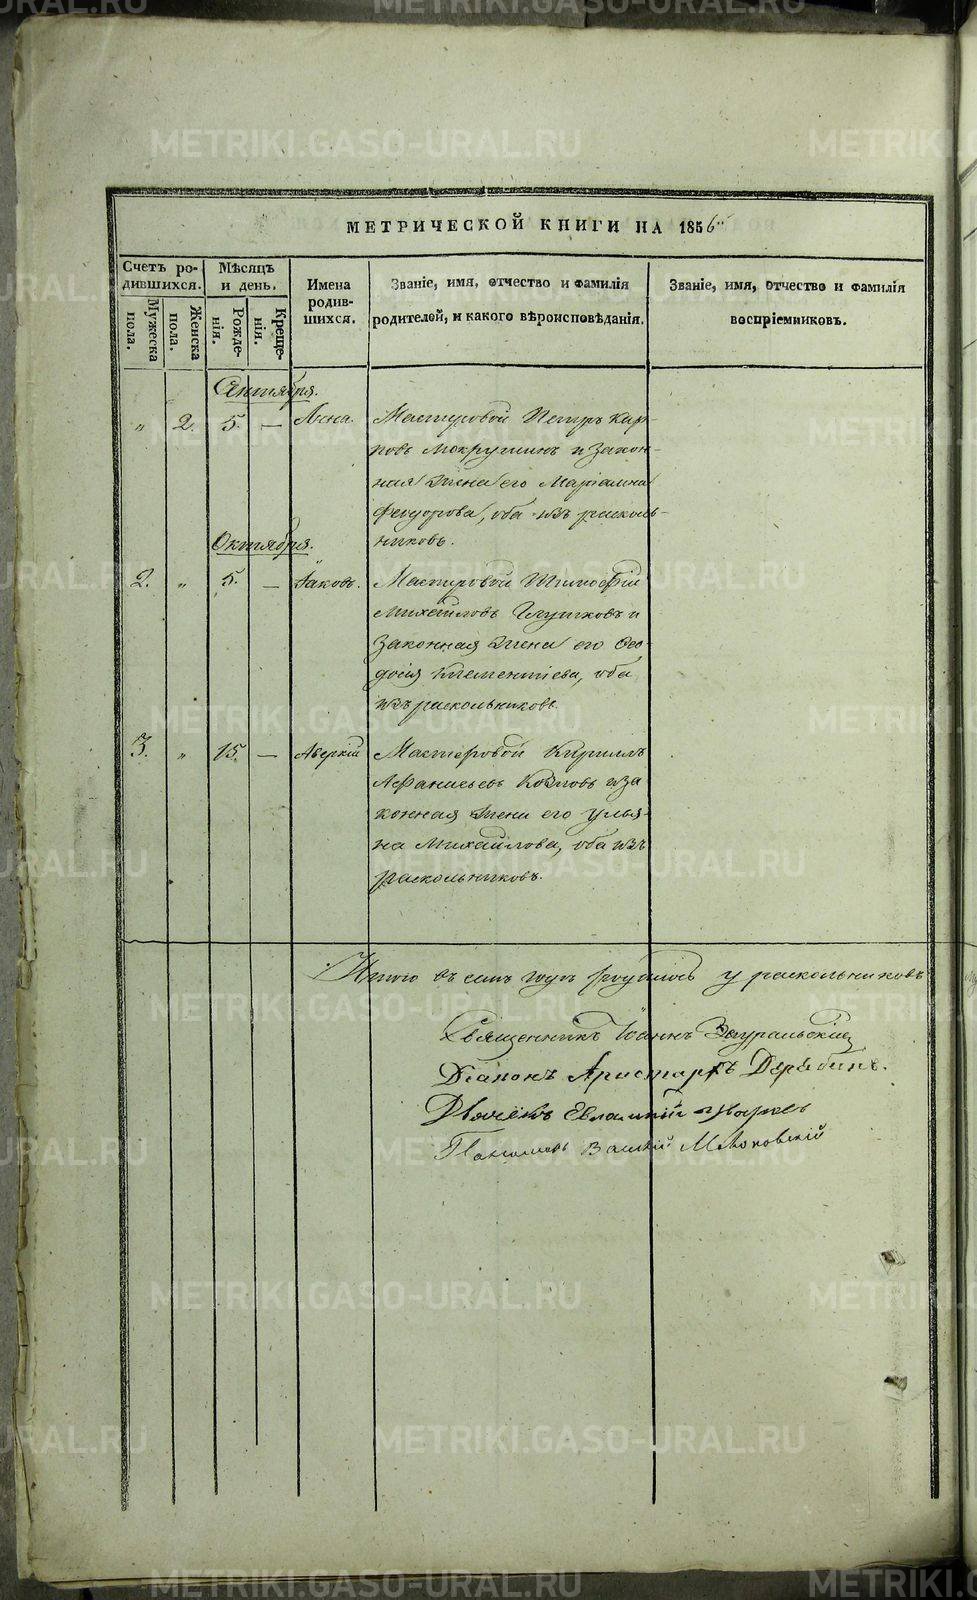 МЕТРИЧЕСКОЙ КНИГИ НА 1856
Счетъ ро-
дившихся.
Мѣсяцъ
и день.
Имена
родив-
шихся.
Званіе, имя, отчество и фамилія
родителей, и какого вѣроисповѣданія.
Званіе, имя, отчество и фамилія
воспріемниковъ.
Мужеска
пола.
Женска
пола.
Рожде-
нія.
Креще-
нія.
Сентября.
" 2. 5. — Анна. Мастеровой Петръ Кар-
повъ Мокрушинъ и закон-
ная жена его Маріамна
Феодорова, оба изъ расколь-
никовъ.
Октября.
2. " 5. — Іаковъ. Мастеровой Тимофій
Михайловъ Глушковъ и
законная жена его Фео-
досія Клементіева, оба
изъ раскольниковъ.
3. " 15. — Аверкій Мастеровой Кириллъ
Афанасьевъ Козловъ и за
конная жена его Улья-
на Михайлова, оба изъ
раскольниковъ.
Итого въ семъ году родилось у раскольниковъ
Священникъ Іоаннъ Зауральскій
Діаконъ Аристархъ Дерябинъ.
Дьячекъ Евлампій
Пономарь
METRIKI.GASO-URAL.RU